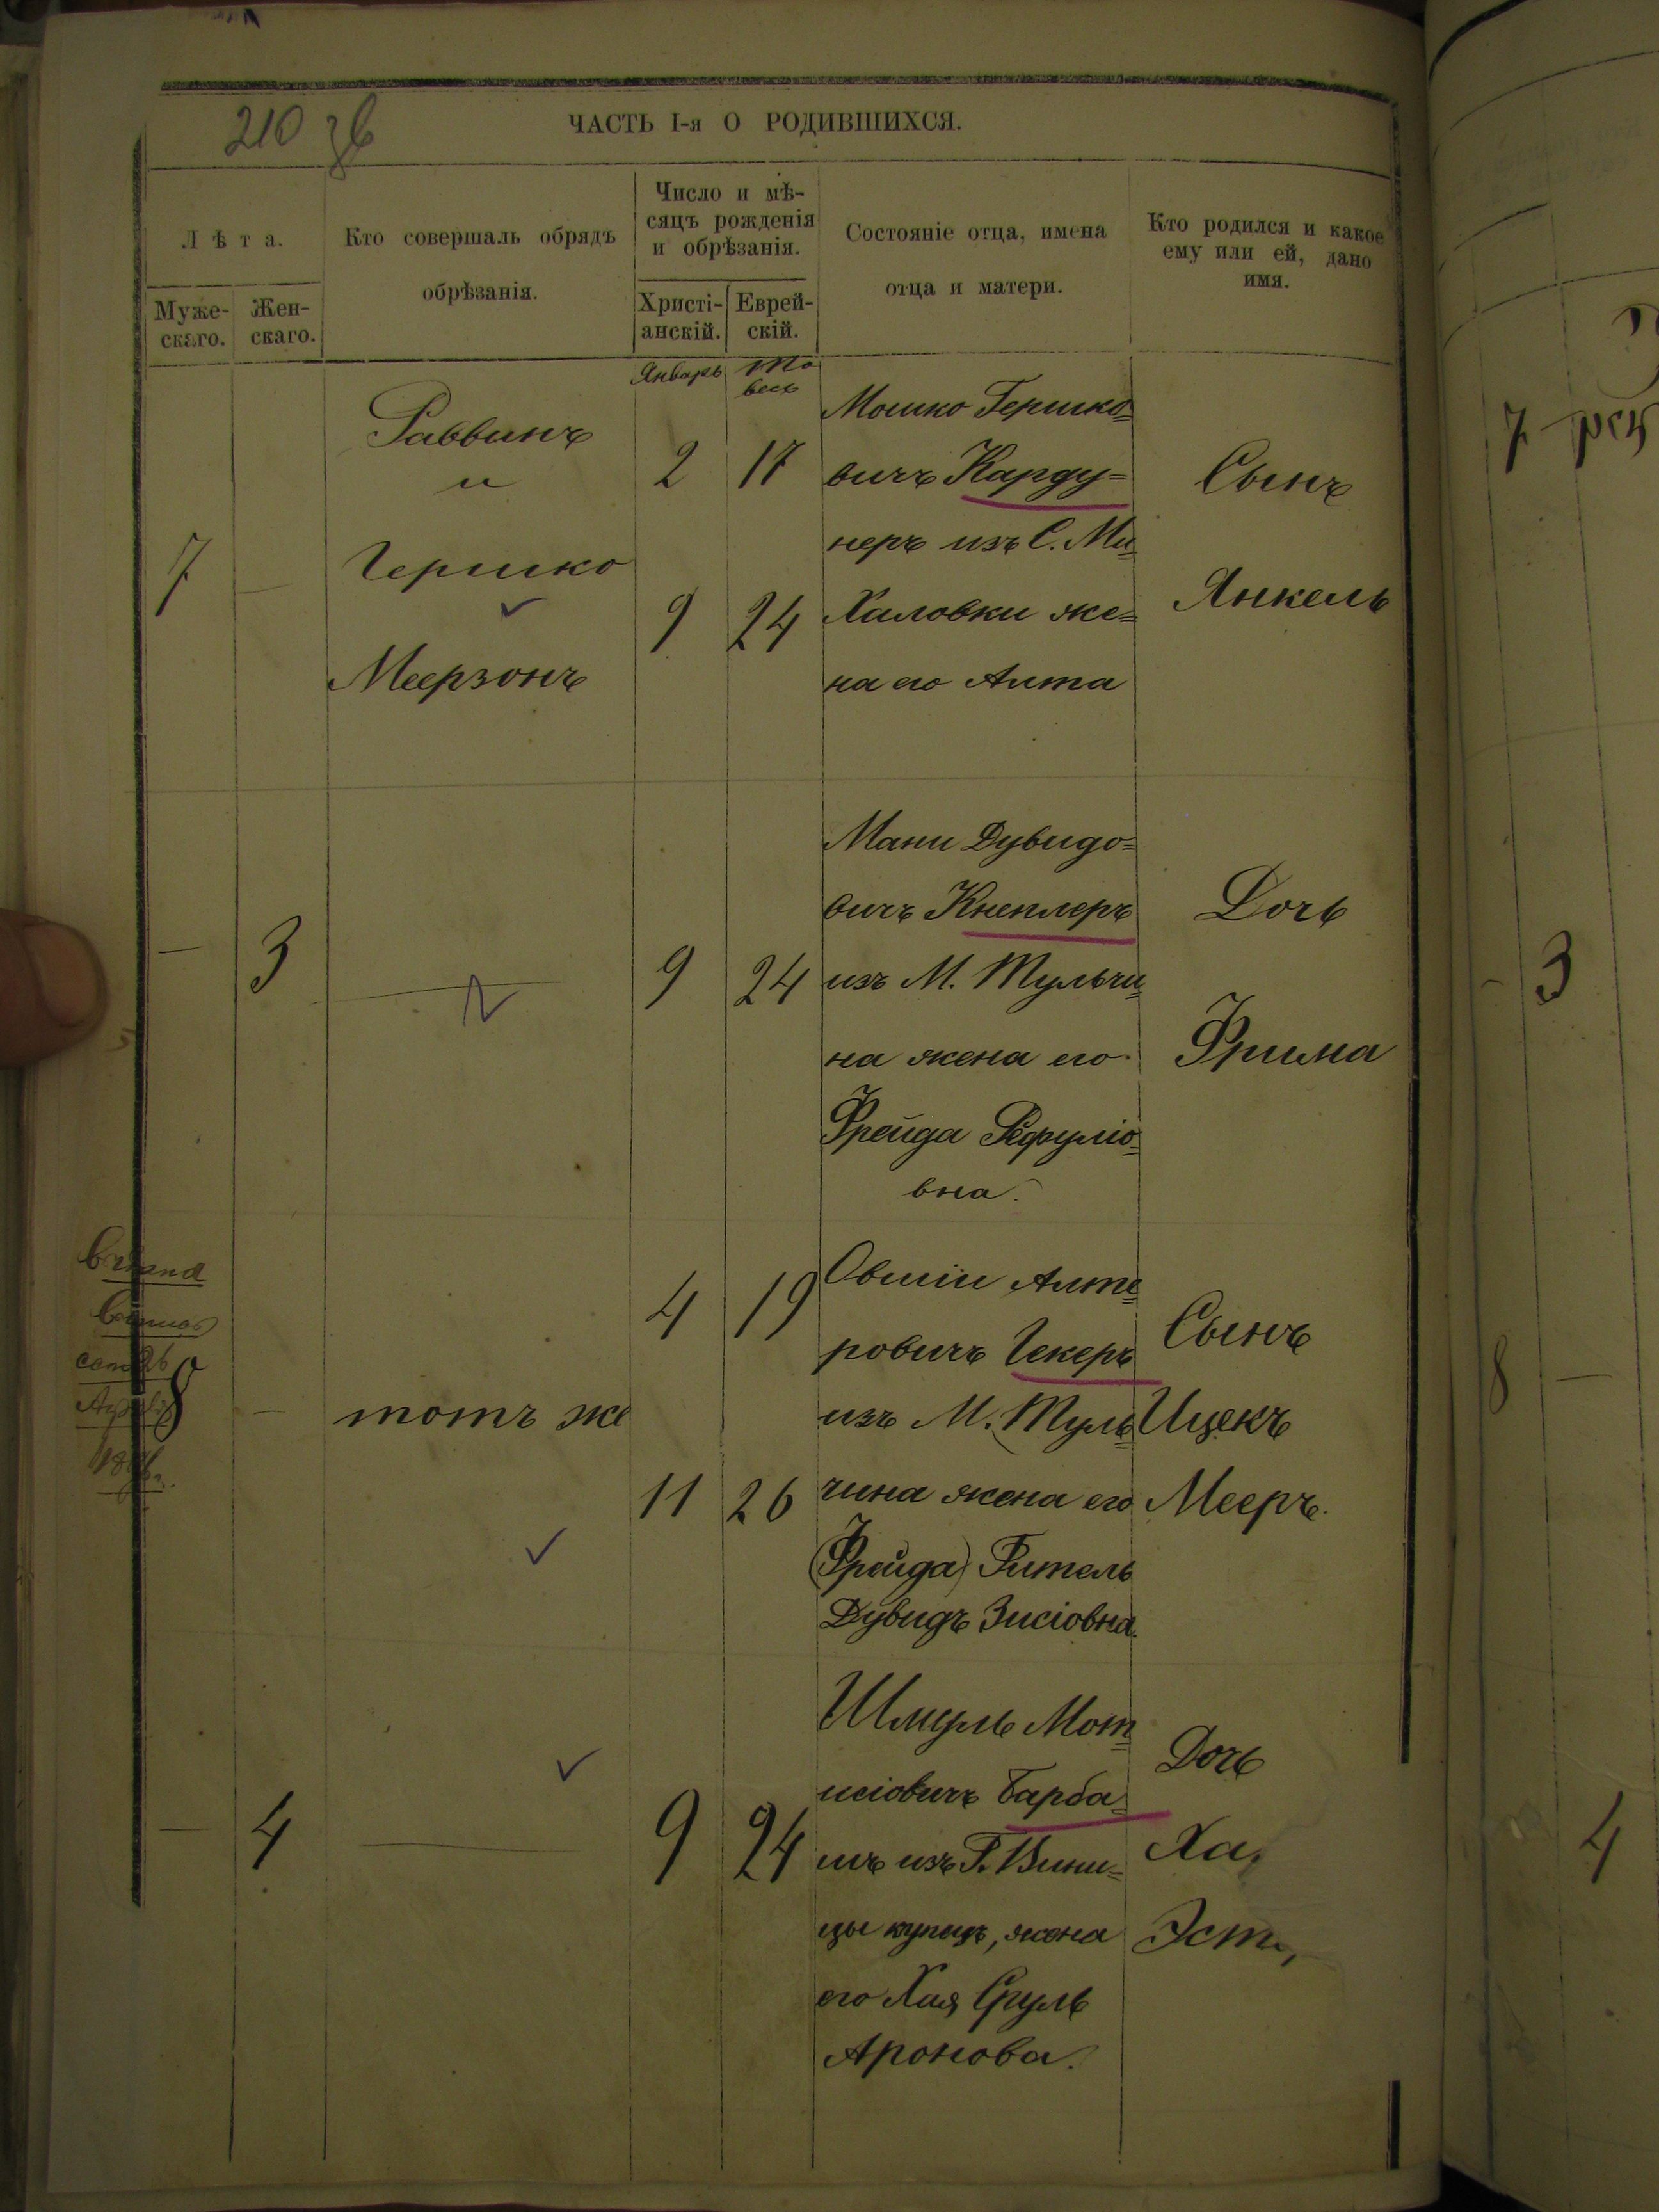 210 зв
ЧАСТЬ I-я О РОДИВШИХСЯ.
Лѣта.
Муже-
скаго.
Жен-
скаго.
Кто совершалъ обрядъ
обрѣзанія.
Число и мѣ-
сяцъ рожденія
и обрѣзанія.
Христі-
анскій.
Еврей-
скій.
Состояніе отца, имена
отца и матери.
Кто родился и какое
ему или ей, дано
имя.
Январь
Те
весъ
7
—
Раввинъ
и
Гершко
Меерзонъ
2
17
9
24
Мошко Гершко=
вичъ Карду=
неръ изъ С. Ми
халовки же=
на его Алта
Сынъ
Янкель
—
3
9
24
Мани Дувидо=
вичъ Кнеплеръ
изъ М. Тульчи
на жена его
Фрейда Рефуліо
вна.
Дочь
Фрима
8
—
тотъ же
4
19
11
26
Овшіи Алте
ровичъ Гекеръ
изъ М. Туль
чина жена его
(Фрейда) Гитель
Дувидъ Зисіовна.
Сынъ
Ицекъ
Мееръ.
—
4
9
24
Шмуль Мот
исіовичъ Барба
шъ изъ Г. Вини=
цы купецъ, жена
его Хая Сруль
Аронова.
Дочь
Ха,
Эст,
7
3
8
4